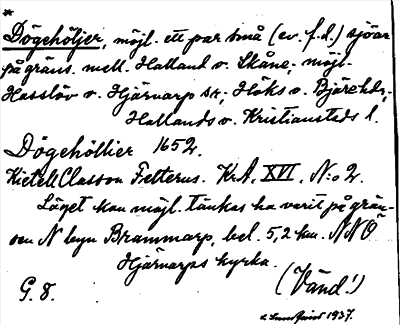 *
Dögehöljer, möjl. ett par små (ev. f.d.) sjöar
på gräns. mell. Halland o. Skåne, möjl.
Hasslöv o. Hjärnarp sn, Höks o. Bjäre hd,
Hallands o. Kristianstads l.
Dögehöllier 1652.
Kietell Classon Felterus. K.A. XVI. N:o 2.
Läget kan möjl. tänkas ha varit på grän-
sen N byn Brammarp, bel. 5,2 km. NNÖ
Hjärnarps kyrka.
(Vänd!)
G. 8.
1937.